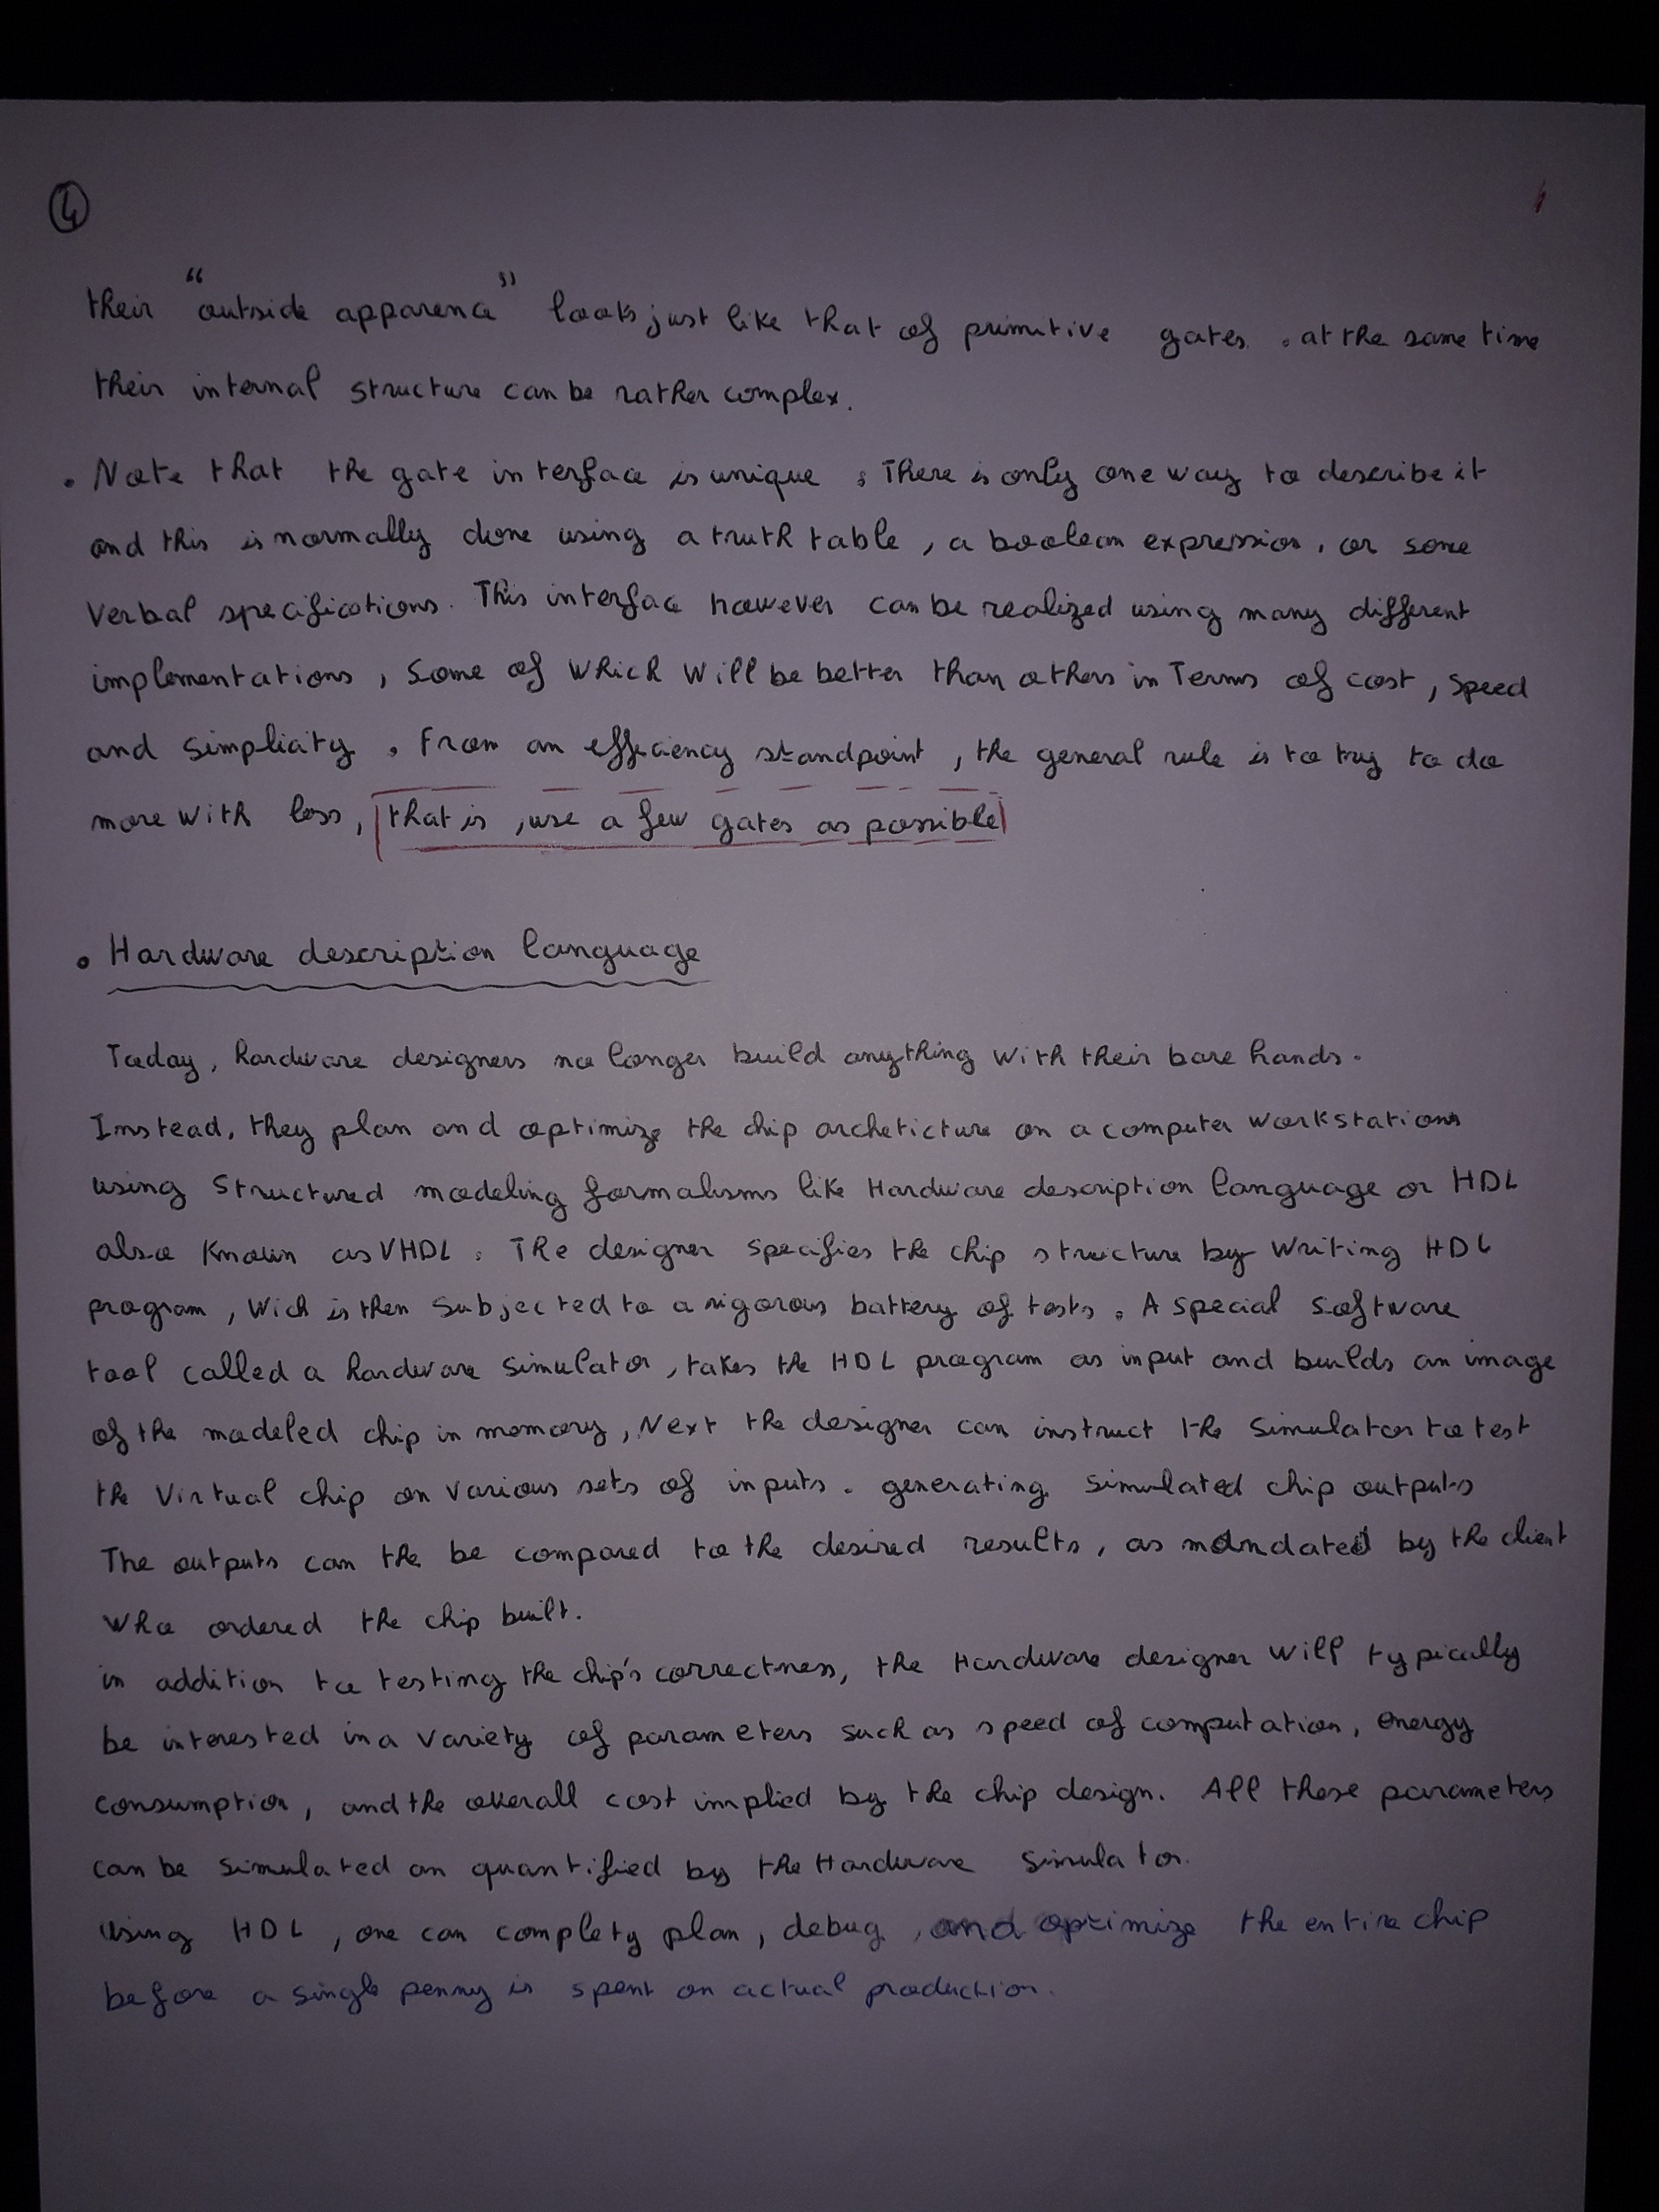 4
their "outside apparence" looks just like that of primitive gates. at the same time
their internal structure can be rather complex.
• Note that the gate interface is unique : There is only one way to describe it
and this is normally done using a truth table, a boolean expression, or some
Verbal specifications. This interface however can be realized using many different
implementations, some of which will be better than others in Terms of cost, speed
and simplicity. From an efficiency standpoint, the general rule is to try to do
more with less, that is, use a few gates as possible
• Hardware description language
Today, hardware designers no longer build anything with their bare hands.
Instead, they plan and optimize the chip archeticture on a computer workstations
using Structured modeling formalisms like Hardware description language or HDL
also Known as VHDL. The designer specifies the chip structure by writing HDL
program, Wich is then subjected to a rigorous battery of tests. A special software
tool called a hardware simulator, takes the HDL program as input and builds an image
of the modeled chip in memory, Next the designer can instruct the simulator to test
the Virtual chip on various sets of inputs. generating simulated chip outputs
The outputs can the be compared to the desired results, as mandated by the client
who ordered the chip built.
in addition to testing the chip's correctness, the Hardware designer will typically
be interested in a variety of parameters such as speed of computation, energy
consumption, and the overall cost implied by the chip design. All these parameters
can be simulated an quantified by the Hardware simulator.
Using HDL, one can complety plan, debug, and optimize the entire chip
before a single penny is spent on actual production.